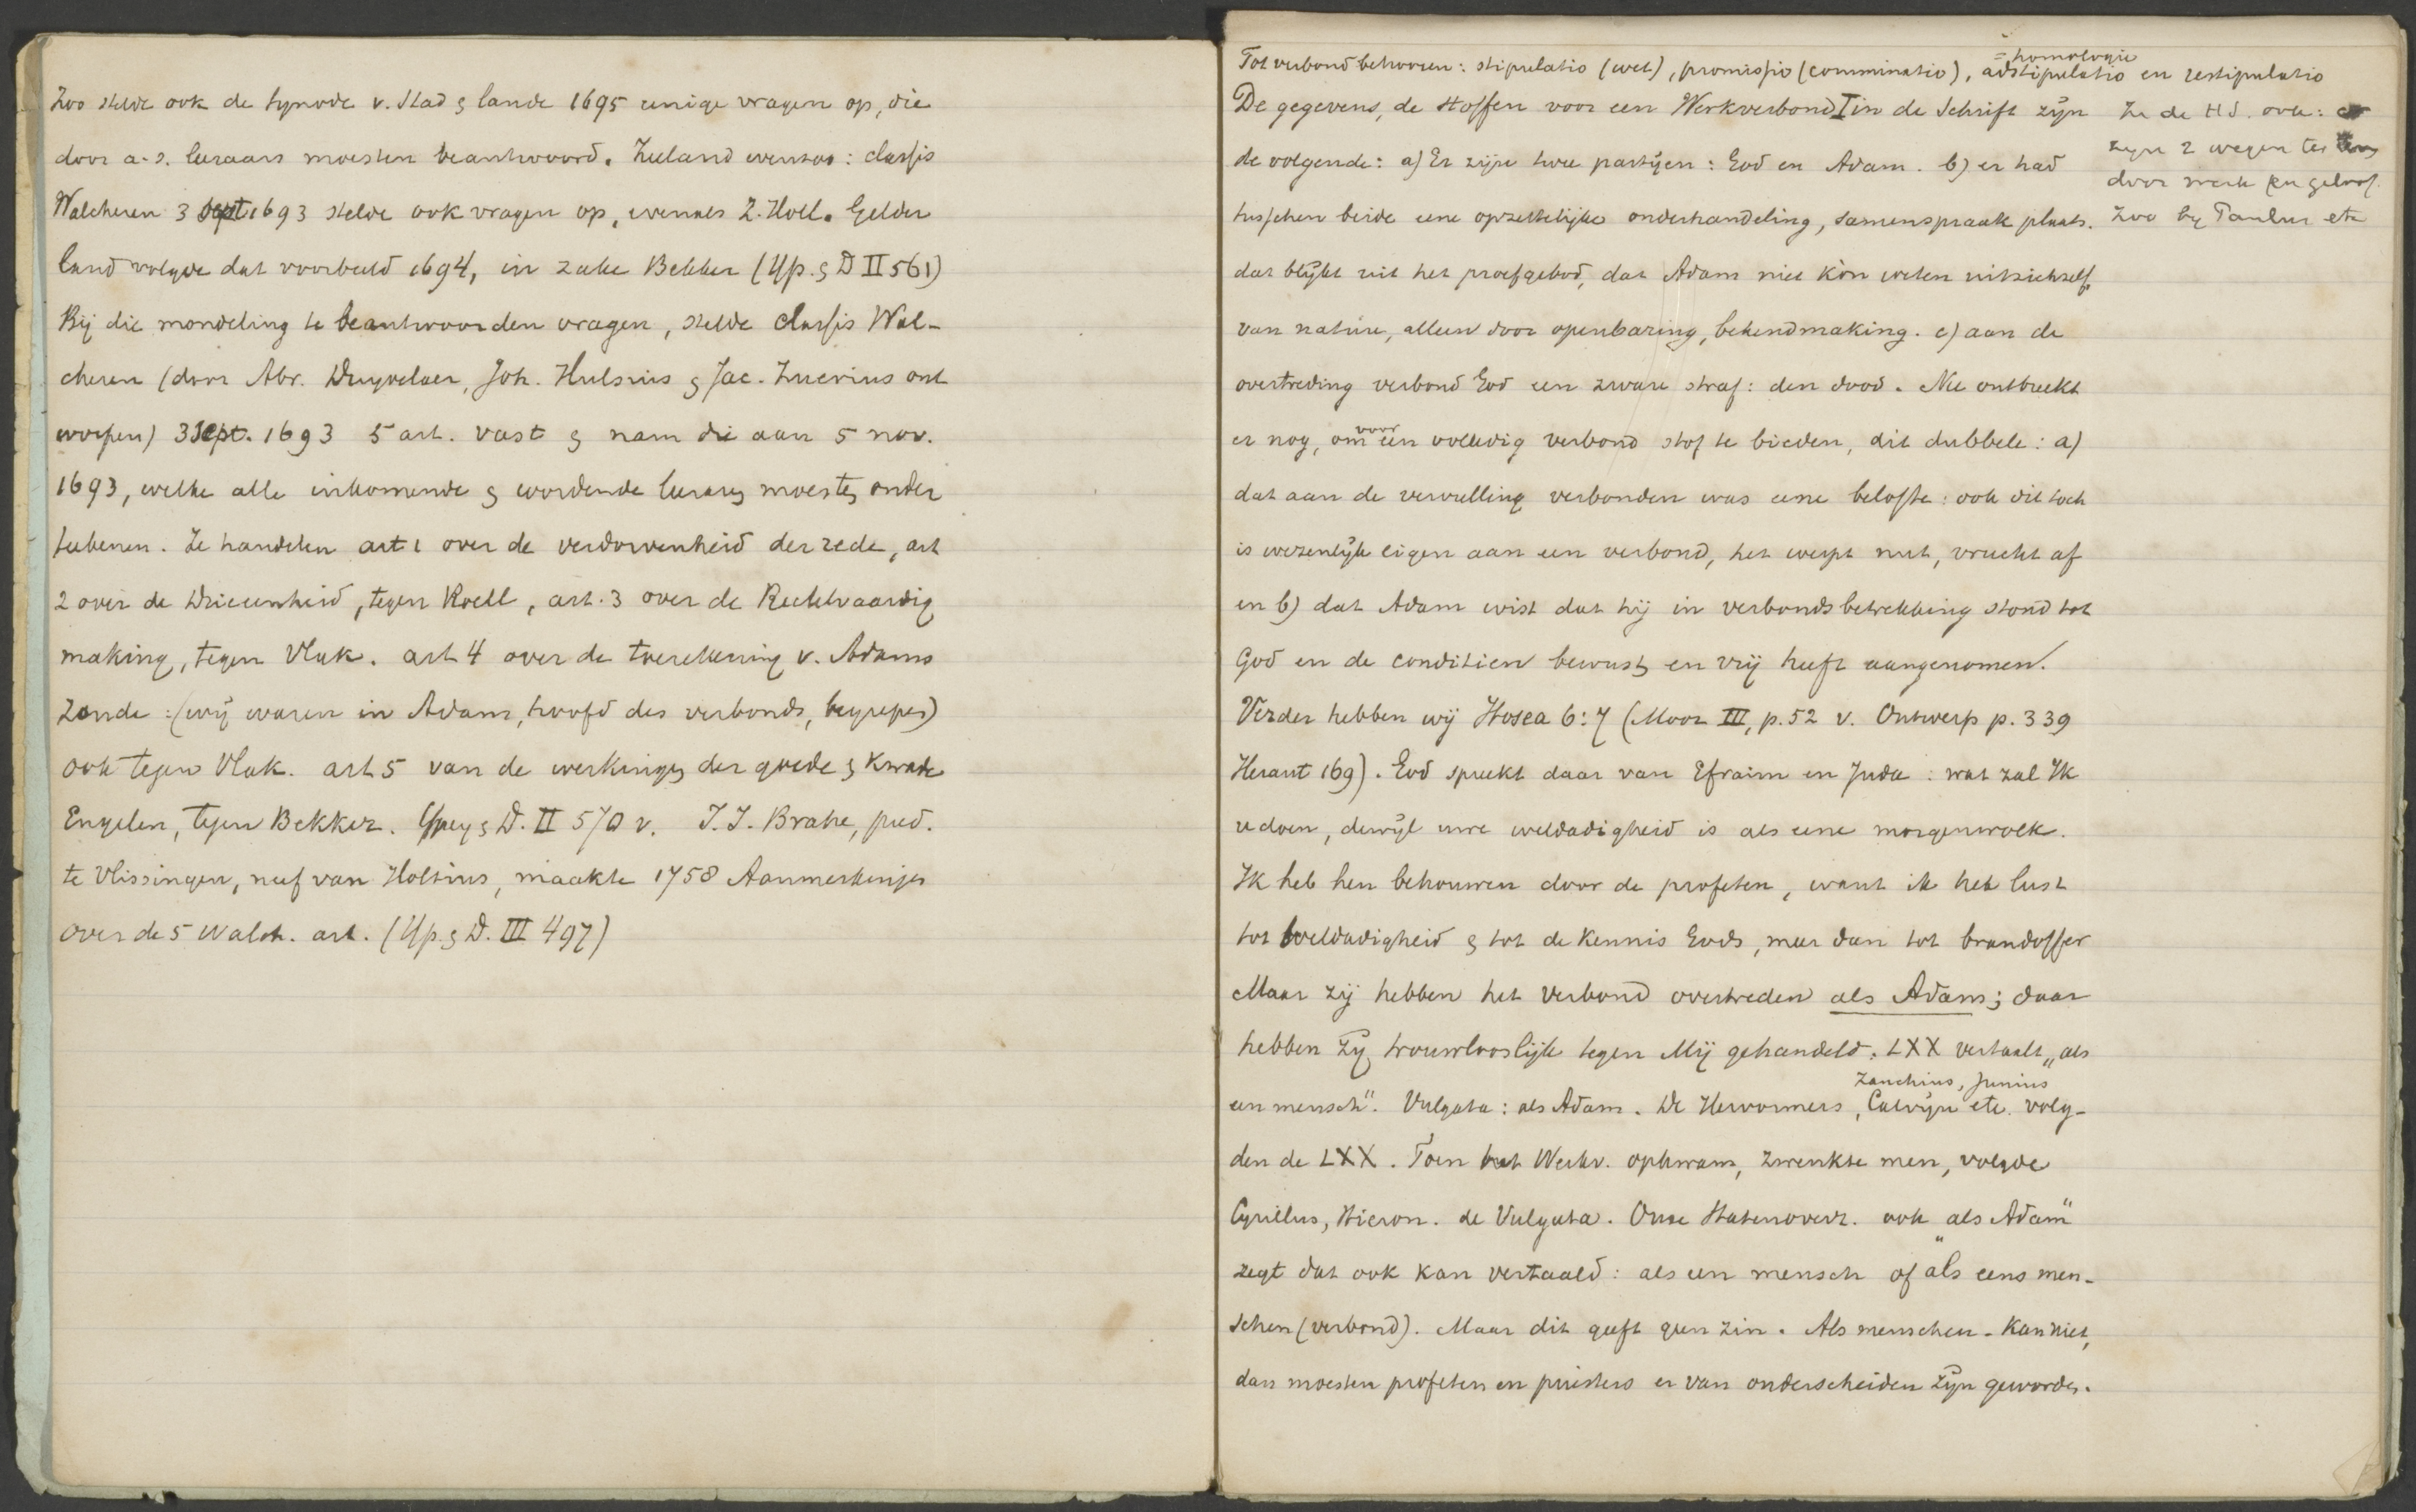 Zoo stelde ook de synode v. Stad & lande 1695 eenige vragen op, die
door a.s. leeraars moesten beantwoord. Zeeland evenzoo: classis
Walcheren 3 Sept 1693 stelde ook vragen op, evenals Z. Holl. Gelder
land volgde dat voorbeeld 1694, in zake Bekker (Yp. & D II 561)
Bij die mondeling te beantwoorden vragen, stelde classis Wal-
cheren (door Abr. Duyvelaer, Joh. Hulsius & Jac. Fruerius ont
worpen) 3 Sept. 1693 5 art. vast & nam die aan 5 nov.
1693, welke alle inkomende & wordende leeraars moesten onder
teekenen. Ze handelen art 1 over de verdorvenheid der rede, art
2 over de Drieeenheid, tegen Roell, art. 3 over de Rechtvaardig
making, tegen Vlak. art 4 over de toerekening v. Adams
zonde: (wij waren in Adam, hoofd des verbonds, begrepen)
ook tegen Vlak. art 5 van de werkingen der goede & kwade
Engelen, tegen Bekker. Ypey & D. II 570 v. J. J. Brahe, pred.
te Vlissingen, neef van Holtius, maakte 1758 Aanmerkingen
over de 5 Walch. art. (Yp. & D. III 497)
= homologie
Tot verbond behooren: stipulatio (wet), promissio (comminatio), adstipulatio en restipulatio
De gegevens, de stoffen voor een Werkverbond in de Schrift zijn
de volgende: a) Er zijn twee partijen: God en Adam. b) er had
tusschen beide eene opzettelijke onderhandeling, samenspraak plaats.
dat blijkt uit het proefgebod, dat Adam niet kòn weten uit zichzelf,
van nature, alleen door openbaring, bekendmaking. c) aan de
overtreding verbond God een zware straf: den dood. Nu ontbreekt
er nog, om voor een volledig verbond stof te bieden, dit dubbele: a)
dat aan de vervulling verbonden was eene belofte: ook dit toch
is wezenlijk eigen aan een verbond, het werpt nut, vrucht af
en b) dat Adam wist dat hij in verbondsbetrekking stond tot
God en de conditien bewust en vrij heeft aangenomen.
Verder hebben wij Hosea 6:7 (Moor III, p. 52 v. Ontwerp p. 339
Heraut 169). God spreekt daar van Efraim en Juda: wat zal Ik
u doen, dewijl uwe weldadigheid is als eene morgenwolk.
Ik heb hen behouwen door de profeten, want ik heb lust
tot weldadigheid & tot de kennis Gods, meer dan tot brandoffer
Maar zij hebben het verbond overtreden als Adam; daar
hebben zij trouwlooslijk tegen Mij gehandeld. LXX vertaalt „als
een mensch". Vulgata: als Adam. De Hervormers, Zanchius, Junius Calvijn etc. volg-
den de LXX. Toen het Werkv. opkwam, zwenkte men, volgde
Cyrillus, Hieron. de Vulgata. Onze Statenoverz. ook „als Adam"
zegt dat ook kan vertaald: als een mensch of als eens men-
schen (verbond). Maar dit geeft geen zin. Als menschen - kan niet,
dan moesten profeten en priesters er van onderscheiden zijn geworden.
In de H.S. ook: er
zijn 2 wegen ter
door werk en geloof.
Zoo bij Paulus etc